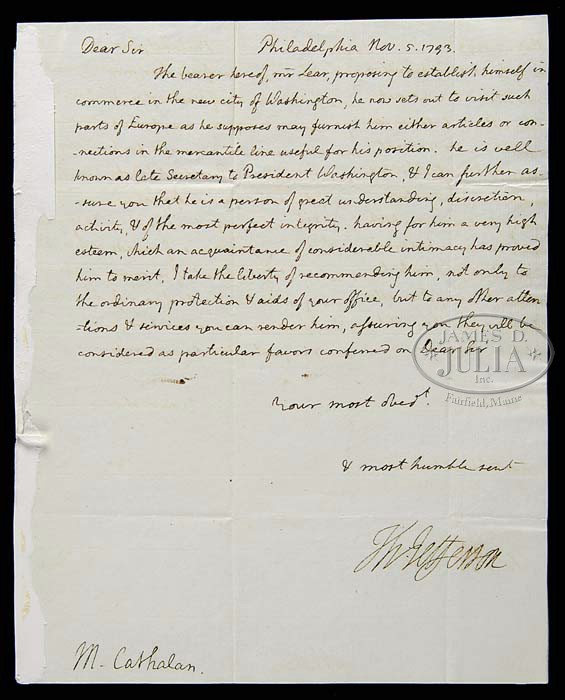 Dear Sir Philadelphia Nov. 5. 1793.
The bearer hereof, mr Lear, proposing to establish himself in
commerce in the new city of Washington, he now sets out to visit such
parts of Europe as he supposes may furnish him either articles or con-
-nections in the mercantile line useful for his position. he is well
known as late Secretary to President Washington, & I can further as-
-sure you that he is a person of great understanding, discretion,
activity, & of the most perfect integrity. having for him a very high
esteem, which an acquaintance of considerable intimacy has proved
him to merit, I take the liberty of recommending him, not only to
the ordinary protection & aids of your office, but to any other atten-
-tions & services you can render him, assuring you they will be
considered as particular favors conferred on Dear Sir
JAMES D.
JULIA
Inc.
Fairfield, Maine
Your most obedt.
& most humble servt
Th: Jefferson
M. Cathalan.